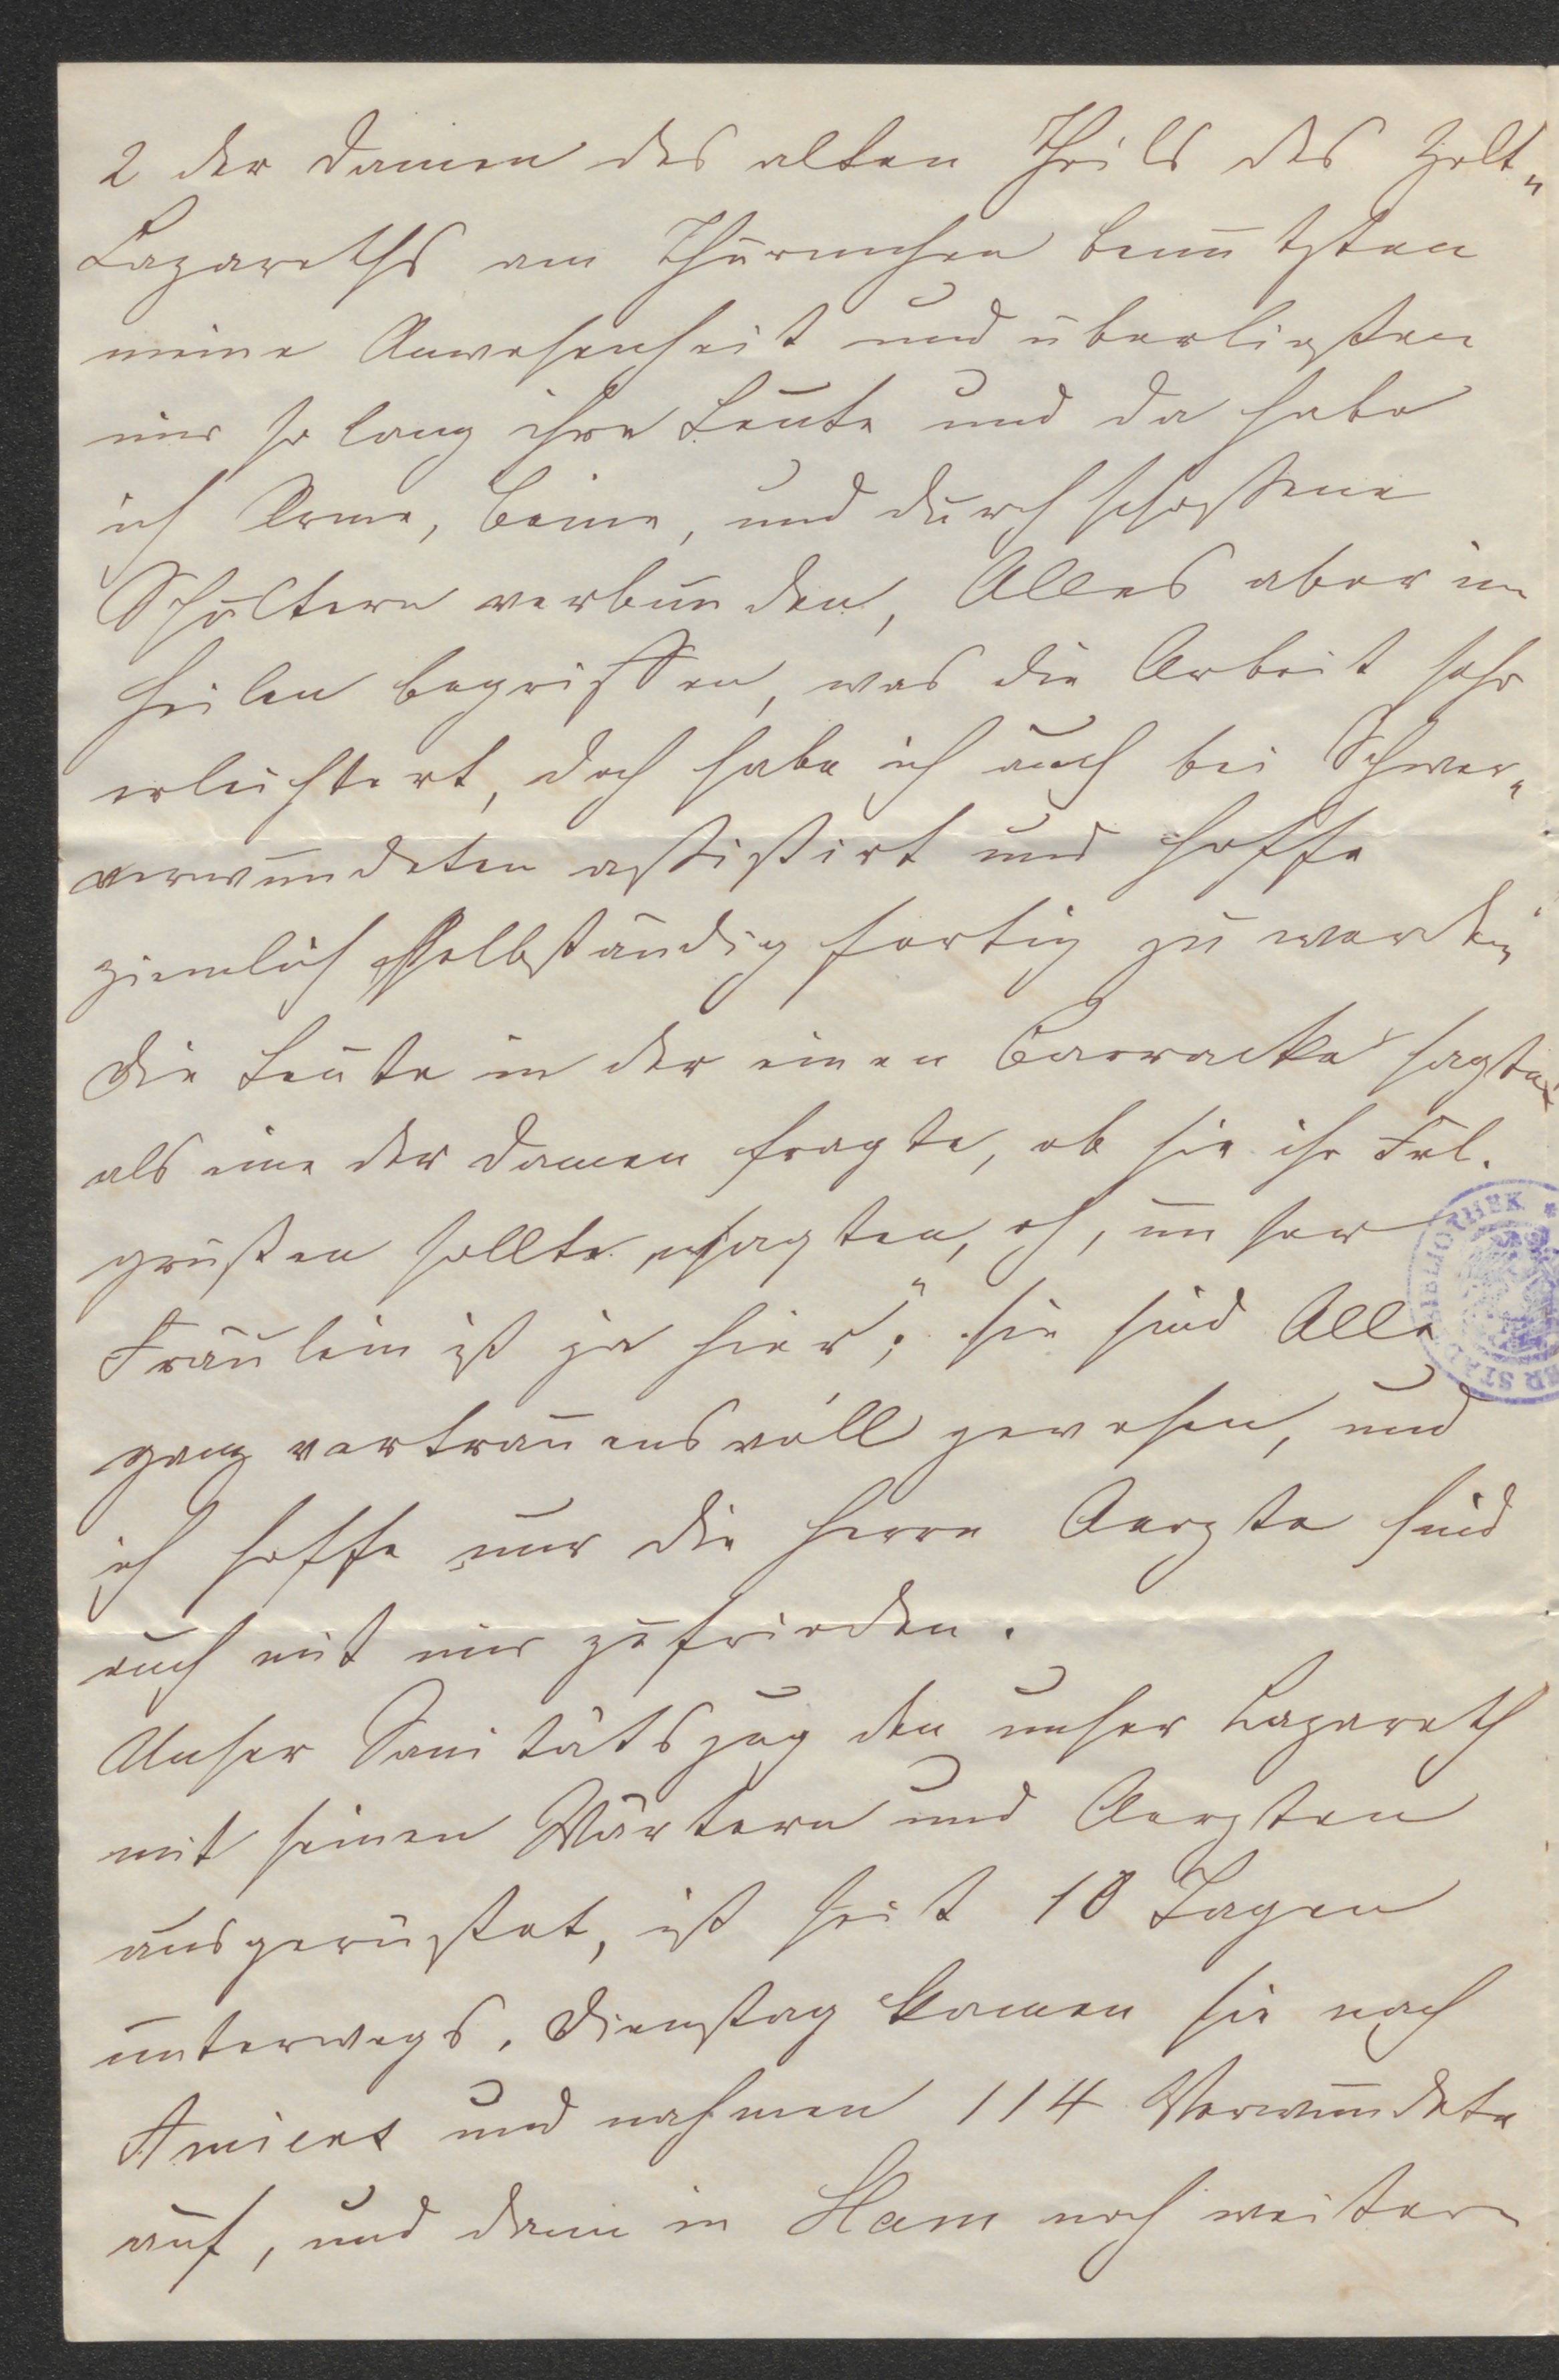 2 der Damen des alten Theils des Zelt-
Lazareths am Thürmchen benutzten
meine Anwesenheit und überließen
mir so lang ihre Leute und da habe
ich Arme, Beine, und durchschossene
Schultern verbunden, Alles aber im
Heilen begriffen, was die Arbeit sehr
erleichtert, doch habe ich auch bei Schwer-
verwundeten assistirt und hoffe
ziemlich selbständig fertig zu werden,
die Leute in der einen Barracke sagten
als eine der Damen fragte, ob sie ihr Frl.
grüßen sollte, sagten, oh, unser
Fräulein ist ja hier"; sie sind Alle
ganz vertrauensvoll gewesen, und
ich hoffe nur die Herrn Aerzte sind
auch mit mir zufrieden.
Unser Sanitätszug den unser Lazareth
mit seinen Wärtern und Aerzten
ausgerüstet, ist seit 10 Tagen
unterwegs. Dienstag kamen sie nach
Amiens und nahmen 114 Verwundete
auf, und dann in Ham noch weitere